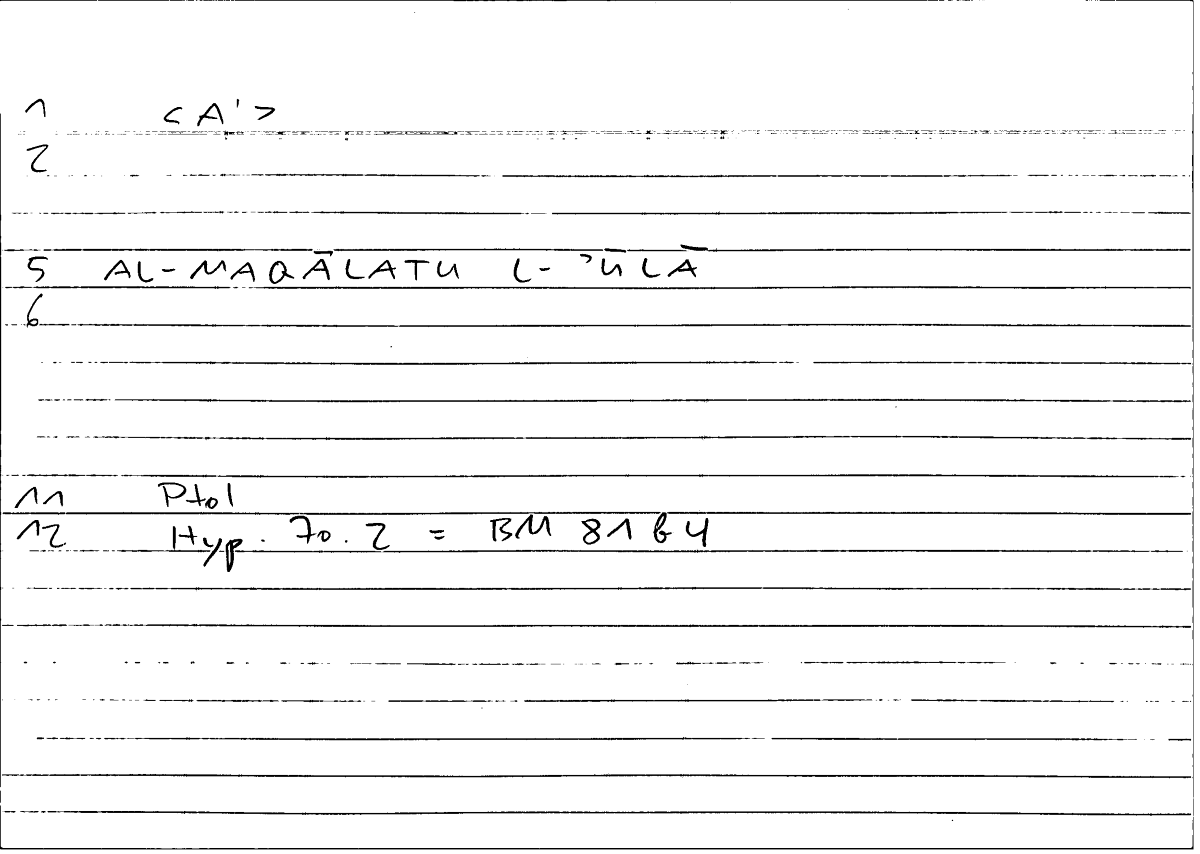 1 <A'>
2
5 AL-MAQĀLATU L-ʾŪLĀ
6
11 Ptol
12 Hyp. 70.2 = BM 81b4